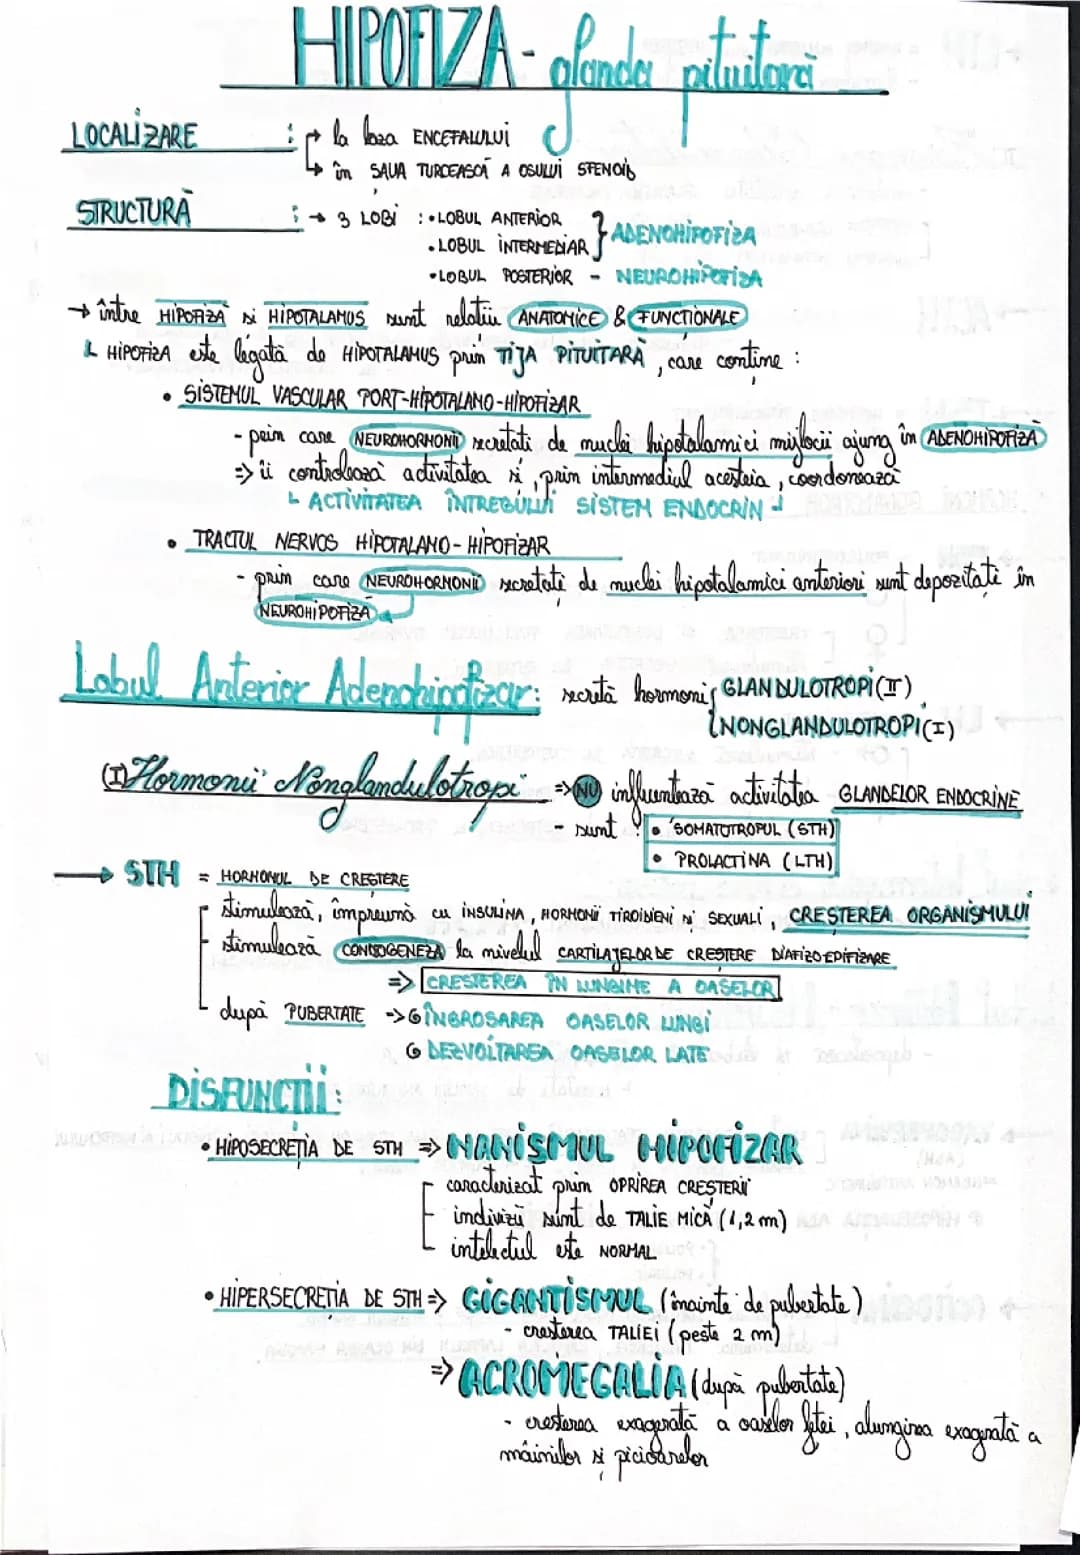 HIPOFIZA - glanda pituitară
LOCALIZARE : → la baza ENCEFALULUI
↳ în SAUA TURCEASCĂ A OSULUI SFENOID
STRUCTURĂ : → 3 LOBI : • LOBUL ANTERIOR
• LOBUL INTERMEDIAR } ADENOHIPOFIZA
• LOBUL POSTERIOR - NEUROHIPOFIZA
→ între HIPOFIZĂ și HIPOTALAMUS sunt relații ANATOMICE & FUNCȚIONALE
↳ HIPOFIZA este legată de HIPOTALAMUS prin TIJA PITUITARĂ, care conține :
• SISTEMUL VASCULAR PORT-HIPOTALAMO-HIPOFIZAR
- prin care NEUROHORMONII secretați de nuclei hipotalamici mijlocii ajung în ADENOHIPOFIZĂ
=> îi controlează activitatea și, prin intermediul acesteia, coordonează
↳ ACTIVITATEA ÎNTREGULUI SISTEM ENDOCRIN ↲
• TRACTUL NERVOS HIPOTALAMO-HIPOFIZAR
- prin care NEUROHORMONII secretați de nuclei hipotalamici anteriori sunt depozitați în
NEUROHIPOFIZĂ
Lobul Anterior Adenohipofizar: secretă hormoni { GLANDULOTROPI (II)
NONGLANDULOTROPI (I)
(I) Hormonii Nonglandulotropi => NU influentează activitatea GLANDELOR ENDOCRINE
- sunt : • SOMATOTROPUL (STH)
• PROLACTINA (LTH)
→ STH = HORMONUL DE CREȘTERE
stimulează, împreună cu INSULINA, HORMONII TIROIDIENI și SEXUALI, CREȘTEREA ORGANISMULUI
stimulează CONDOGENEZA la nivelul CARTILAJELOR DE CREȘTERE DIAFIZO-EPIFIZARE
=> CREȘTEREA ÎN LUNGIME A OASELOR
după PUBERTATE -> ÎNGROȘAREA OASELOR LUNGI
DEZVOLTAREA OASELOR LATE
DISFUNCȚII :
• HIPOSECREȚIA DE STH => NANISMUL HIPOFIZAR
caracterizat prin OPRIREA CREȘTERII
indivizii sunt de TALIE MICĂ (1,2 m)
intelectul este NORMAL
• HIPERSECREȚIA DE STH => GIGANTISMUL (înainte de pubertate)
- creșterea TALIEI (peste 2 m)
=> ACROMEGALIA (după pubertate)
- creșterea exagerată a oaselor feței, alungirea exagerată a
mâinilor și picioarelor